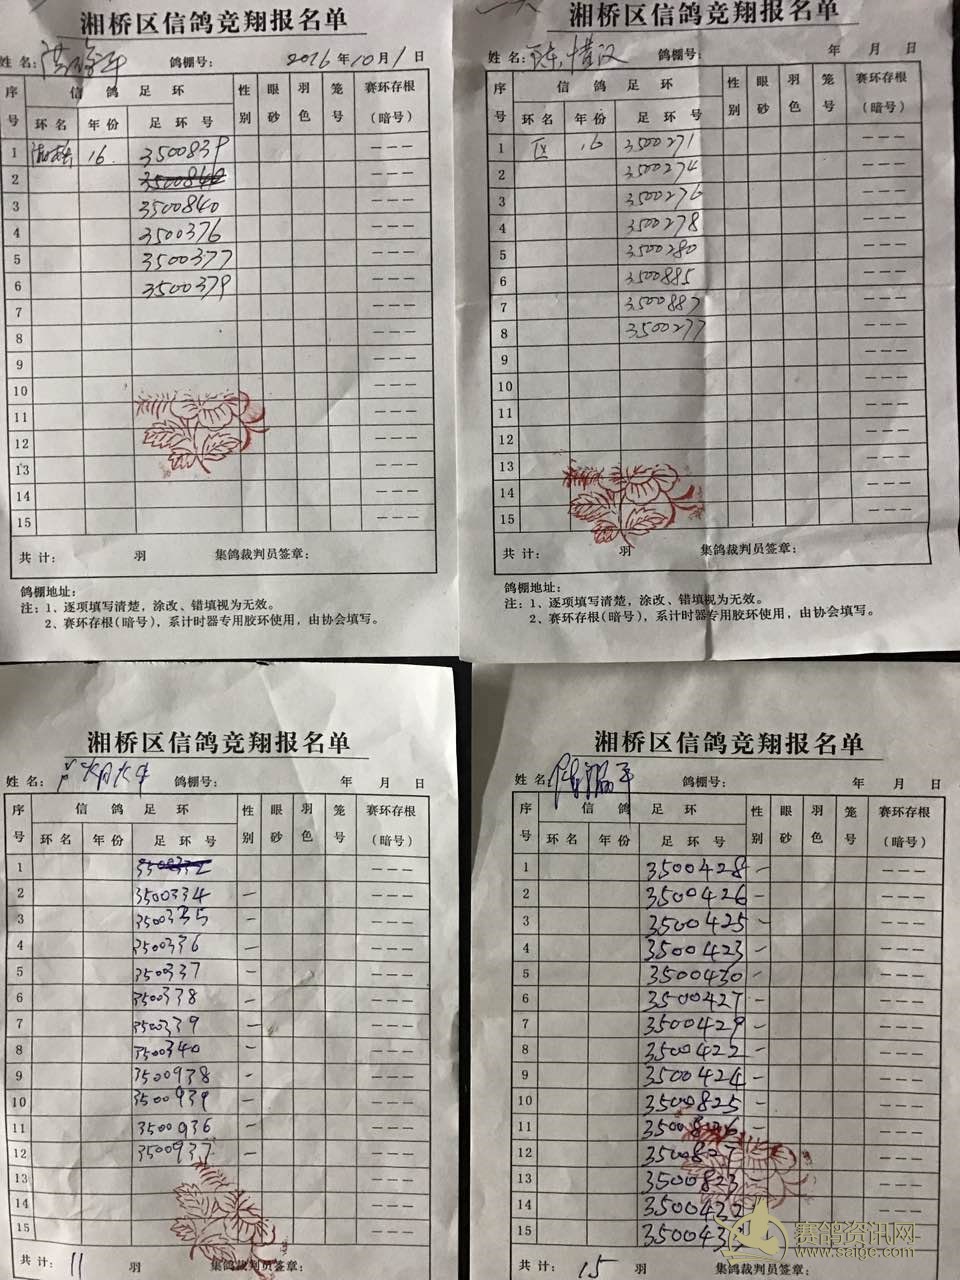 湘桥区信鸽竞翔报名单
姓名: 鸽棚号: 2016年10月1日
序号 信鸽足环 性别 眼砂 羽色 笼号 赛环存根(暗号)
环名 年份 足环号
1 湘桥 16. 3500839 ---
2 3500840 ---
3 3500840 ---
4 3500376 ---
5 3500377 ---
6 3500379 ---
7 ---
8 ---
9 ---
10 ---
11 ---
12 ---
13 ---
14 ---
15 ---
共计: 羽 集鸽裁判员签章:
鸽棚地址:
注:1、逐项填写清楚,涂改、错填视为无效。
2、赛环存根(暗号),系计时器专用胶环使用,由协会填写。
湘桥区信鸽竞翔报名单
姓名: 陈惜汉 鸽棚号: 年 月 日
序号 信鸽足环 性别 眼砂 羽色 笼号 赛环存根(暗号)
环名 年份 足环号
1 区 16 3500271 ---
2 3500274 ---
3 3500276 ---
4 3500278 ---
5 3500280 ---
6 3500885 ---
7 3500887 ---
8 3500277 ---
9 ---
10 ---
11 ---
12 ---
13 ---
14 ---
15 ---
共计: 羽 集鸽裁判员签章:
鸽棚地址:
注:1、逐项填写清楚,涂改、错填视为无效。
2、赛环存根(暗号),系计时器专用胶环使用,由协会填写。
湘桥区信鸽竞翔报名单
姓名: 鸽棚号: 年 月 日
序号 信鸽足环 性别 眼砂 羽色 笼号 赛环存根(暗号)
环名 年份 足环号
1 3500332 ---
2 3500334 — ---
3 3500335 — ---
4 3500336 — ---
5 3500337 — ---
6 3500338 — ---
7 3500339 — ---
8 3500340 — ---
9 3500938 — ---
10 3500939 — ---
11 3500936 — ---
12 3500937 — ---
13 ---
14 ---
15 ---
共计: 11 羽 集鸽裁判员签章:
湘桥区信鸽竞翔报名单
姓名: 鸽棚号: 年 月 日
序号 信鸽足环 性别 眼砂 羽色 笼号 赛环存根(暗号)
环名 年份 足环号
1 3500428 — ---
2 3500426 — ---
3 3500425 — ---
4 3500423 — ---
5 3500430 — ---
6 3500427 — ---
7 3500429 — ---
8 3500422 — ---
9 3500424 — ---
10 3500825 — ---
11 3500826 ---
12 3500827 ---
13 3500823 ---
14 3500432
15
共计: 15 羽 集鸽裁判员签章:
赛鸽资讯网
www.saige.com